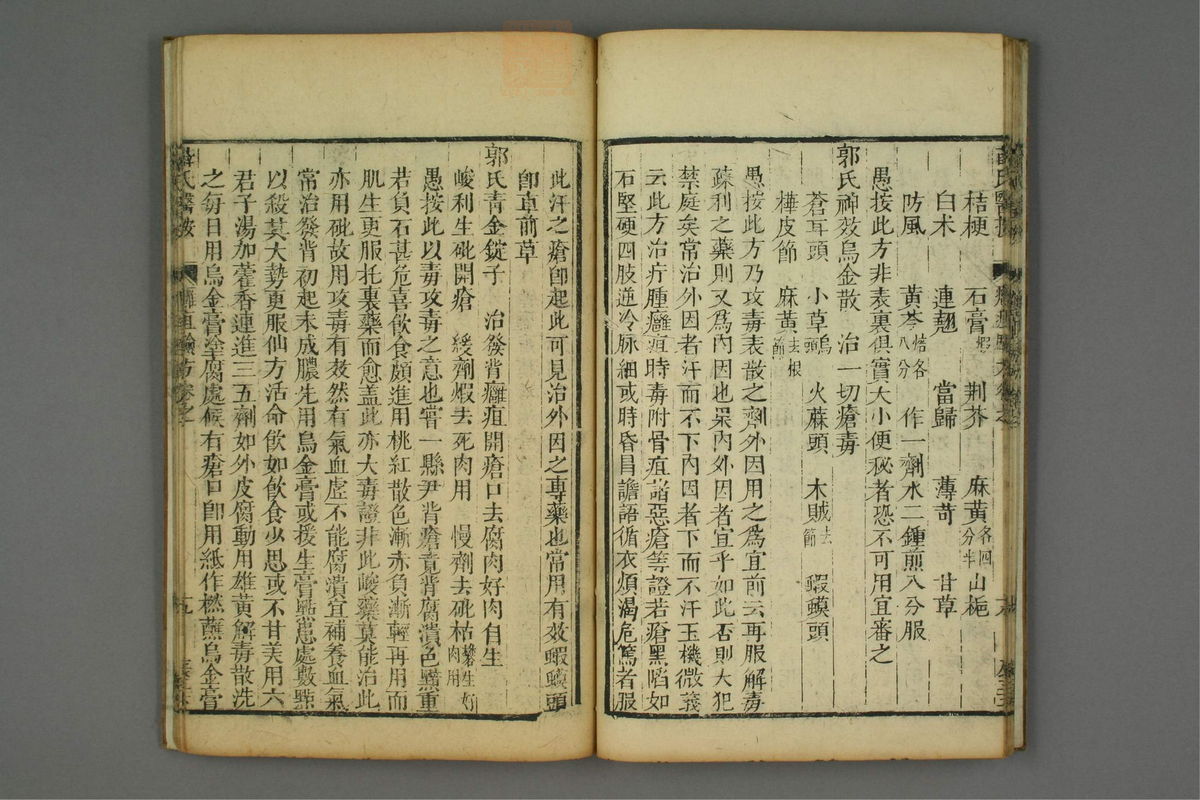 桔梗　石膏煆　荆芥　麻黄各四分半　山梔
白术　連翹　當歸　薄苛　甘草
防風　黄芩焙各八分　作一劑水二鍾煎八分服
愚按此方非表裏俱實大小便秘者恐不可用宜審之
郭氏神效烏金散　治一切瘡毒
蒼耳頭　小草烏頭　火蔴頭　木賊去節　蝦蟆頭
樺皮節　麻黄去根節
愚按此方乃攻毒表散之劑外因用之爲宜前云再服解毒
疎利之藥則又爲内因也果内外因者宜乎如此否則大犯
禁庭矣常治外因者汗而不下内因者下而不汗玉機微義
云此方治疔腫癰疽時毒附骨疽諸惡瘡等證若瘡黑陷如
石堅硬四肢逆冷脉細或時昏冒譫語循衣煩渴危篤者服
此汗之瘡卽起此可見治外因之專藥也常用有效蝦蟆頭
卽車前草
郭氏青金錠子　治發背癰疽開瘡口去腐肉好肉自生
峻利生砒開瘡　緩劑煆去死肉用　慢劑去砒枯礬生好肉用
愚按此以毒攻毒之意也嘗一縣尹背瘡竟背腐潰色黯重
若負石甚危喜飲食頗進用桃紅散色漸赤負漸輕再用而
肌生更服托裏藥而愈盖此亦大毒證非此峻藥莫能治此
亦用砒故用攻毒有效然有氣血虚不能腐潰宜補養血氣
常治發背初起未成膿先用烏金膏或援生膏點患處數點
以殺其大勢更服仙方活命飲如飲食少思或不甘美用六
君子湯加藿香連進三五劑如外皮腐動用雄黄解毒散洗
之每日用烏金膏塗腐處候有瘡口卽用紙作橪蘸烏金膏